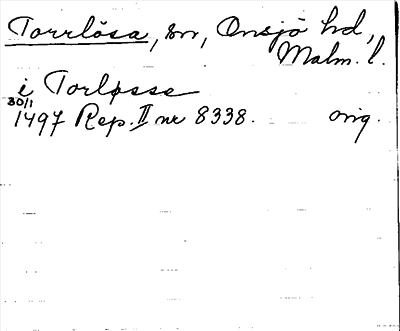 Torrlösa, sn, Onsjö hd,
Malm. l.
i Torløsse
30/1
1497 Rep. II nr 8338. orig.